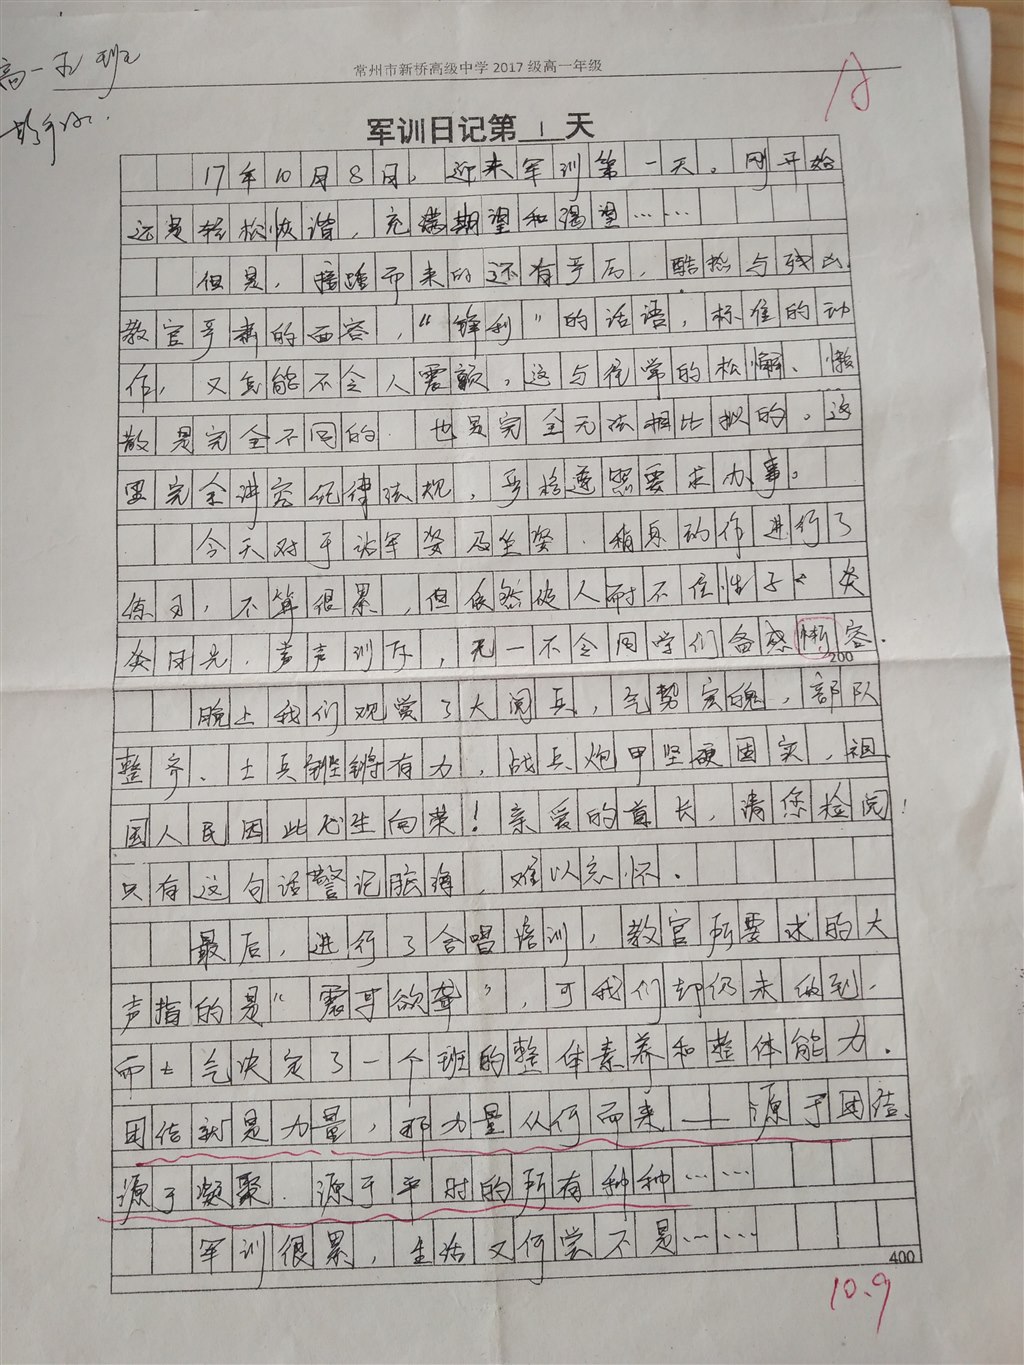 高一五班
常州市新桥高级中学2017级高一年级
A
军训日记第1天
17年10月8日，迎来军训第一天。刚开始
还是轻松恢谐，充满期望和渴望……
但是，接踵而来的还有乎后，酷热与残凶
教官乎肃的面容，“锋利”的话语，标准的动
作，又岂能不令人震颤，这与往常的松懈、懒
散是完全不同的．也是完全无法相比拟的。这
里完全讲究纪律法规，严格遵照要求办事。
今天对于站军姿及坐姿．稍息动作进行了
练习，不算很累，但依然使人耐不住性子“炎
炎日光．声声训斥，无一不令同学们备感惭容．
200
晚上我们观赏了大阅兵，气势宏魄，部队
整齐、士兵铿锵有力，战兵炮甲坚硬固实，祖
国人民因此欣生向荣！亲爱的首长，请您检阅！
只有这句话警记脑海，难以忘怀．
最后，进行了合唱培训，教官所要求的大
声指的是“震耳欲聋”，可我们却仍未做到．
而士气决定了一个班的整体素养和整体能力．
团结就是力量，那力量从何而来——源于团结、
源于凝聚．源于平时的所有种种……
军训很累，生活又何尝不是……
400
10.9